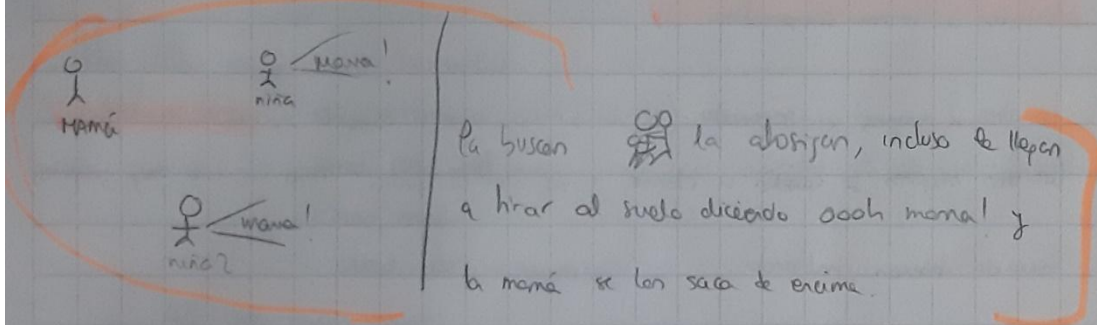 mama!
niña
MAMÁ
mama!
niña 2
la buscan la atosigan, incluso la llegan
a tirar al suelo diciendo oooh mama! y
la mamá se los saca de encima.